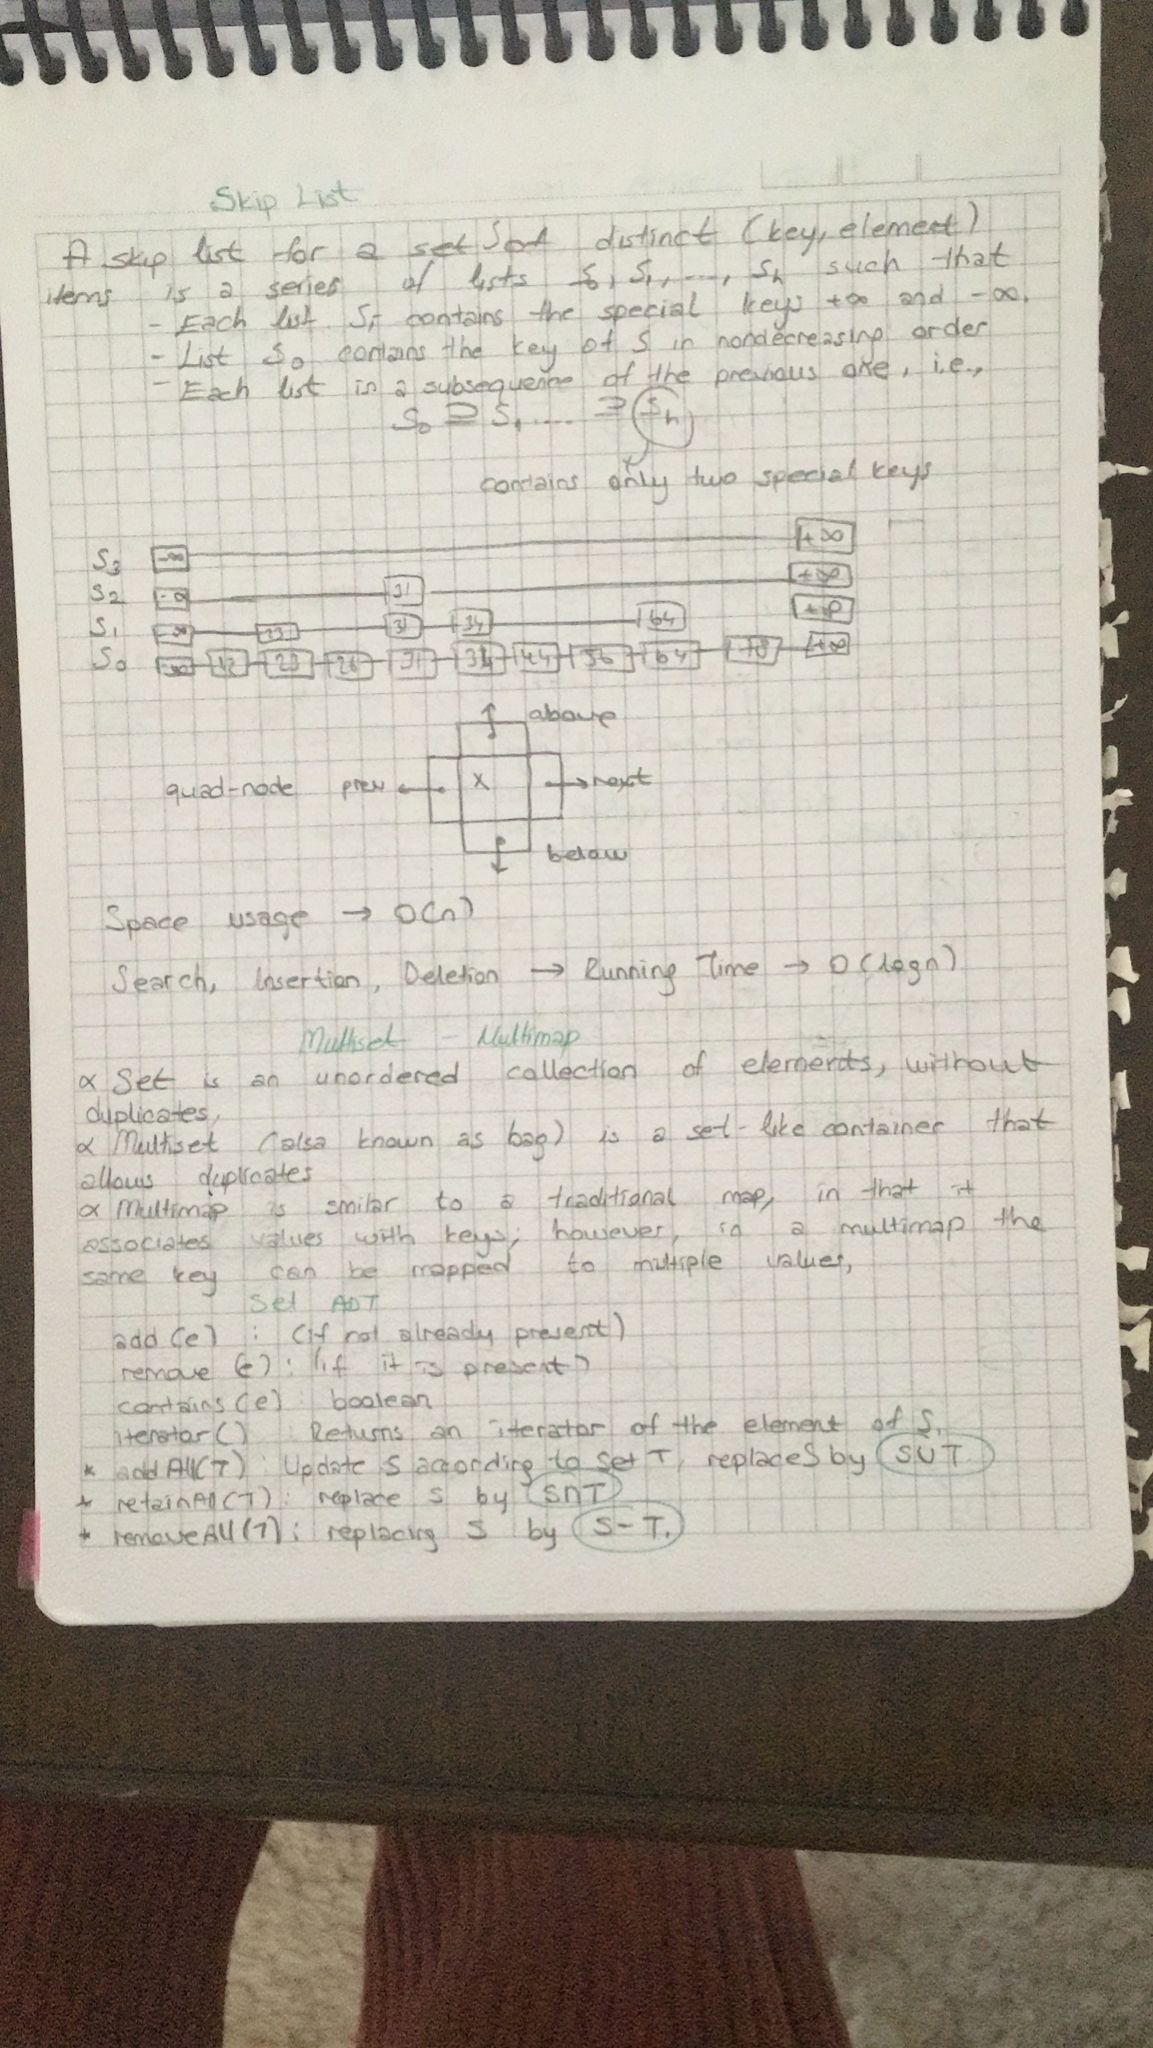 Skip List
A skip list for a set S of distinct (key, element)
items is a series of lists S0, S1, ..., Sh such that
- Each list Si contains the special keys +∞ and -∞.
- List S0 contains the key of S in nondecreasing order
- Each list is a subsequence of the previous one, i.e.,
S0 ⊇ S1 .... ⊇ Sh
contains only two special keys
S3 -∞ +∞
S2 -∞ 31 +∞
S1 -∞ 23 31 34 64 +∞
S0 -∞ 12 23 26 31 34 44 56 64 78 +∞
above
quad-node prev x next
below
Space usage → O(n)
Search, Insertion, Deletion → Running Time → O(logn)
Multiset - Multimap
∝ Set is an unordered collection of elements, without
duplicates,
∝ Multiset (also known as bag) is a set-like container that
allows duplicates
∝ Multimap is smilar to a traditional map, in that it
associates values with keys; however, in a multimap the
same key can be mapped to multiple values,
Set ADT
add(e) : (if not already present)
remove (e) : (if it is present)
contains(e) : boolean
iterator() : Returns an iterator of the element of S.
* addAll(T) : Update S according to set T, replace S by S∪T.
* retainAll(T) : replace S by S∩T
* removeAll(T) : replacing S by S-T.